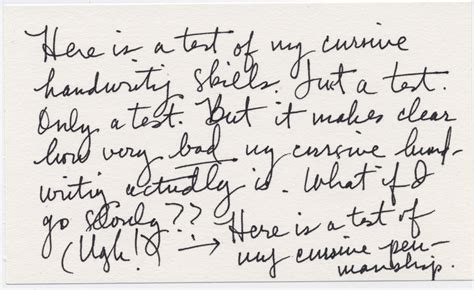 Here is a test of my cursive
handwritig skills. Just a test.
Only a test. But it makes clear
how very bad my cursive hand-
writig actually is. What if I
go slowly??
(Ugh!) → Here is a test of
my cursive pen-
manship.